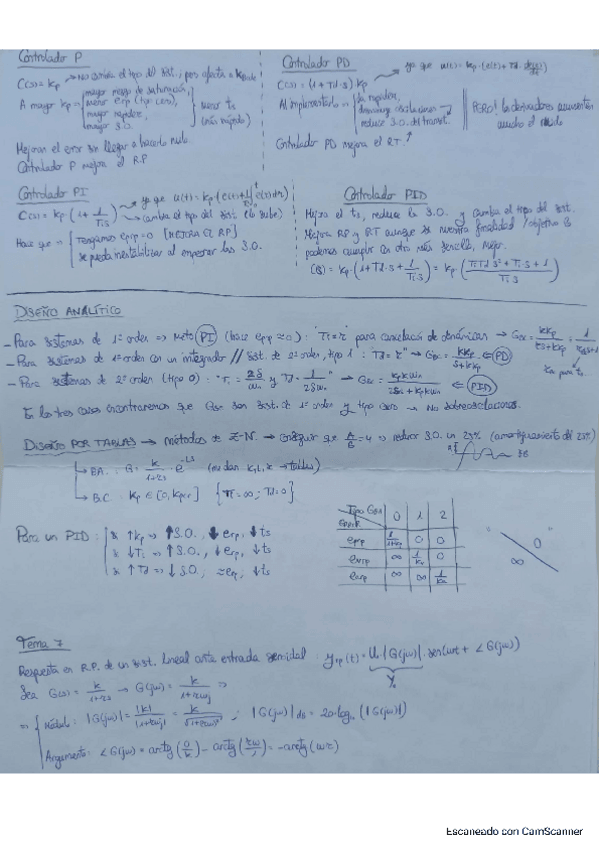 Controlador P
C(s) = Kp → No cambia el tipo del sist., pero afecta a K
A mayor Kp = mayor riesgo de saturación,
menor erp (tipo cero),
mayor rapidez,
mayor S.O.
menor ts
(más rápido)
Mejoran el error sin llegar a hacerlo nulo.
Controlador P mejora el RP
Controlador PD
ya que u(t) = Kp·(e(t) + Td·de(t)/dt)
C(s) = (1 + Td·s) Kp
Al implementarlo = + rapidez,
reduce S.O. del transit.
PERO! los derivadores aumentan
mucho el ruido
Controlador PD mejora el RT.
Controlador PI
ya que u(t) = Kp(e(t) + 1/Ti ∫e(t)dt)
C(s) = Kp (1 + 1/Ti·s) → cambia el tipo del sist. (lo sube)
Hace que = Tengamos erp = 0 [MEJORA EL RP]
Se pueda inestabilizar al empeorar las S.O.
Controlador PID
Mejora el ts, reduce la S.O. y cambia el tipo del sist.
Mejora RP y RT aunque si nuestra finalidad/objetivo es
podemos cumplir con otro más sencillo, mejor.
C(s) = Kp·(1 + Td·s + 1/Ti·s) = Kp (TiTd s² + Ti·s + 1 / Ti·s)
DISEÑO ANALÍTICO
- Para sistemas de 1er orden => Meto PI (hace erp ≈ 0): "Ti = τ" para cancelación de dinámicas → Gbc = KKp/τs+KKp = 1/
- Para sistemas de 1er orden con un integrador // Sist. de 2º orden, tipo 1: "Td = τ" → Gbc = KKp/s+KKp ⇐ PD
- Para sistemas de 2º orden (tipo 0): "Ti = 2δ/ωn y Td = 1/2δωn" → Gbc = KpKωn/2δs + KpKωn ⇐ PID
En los tres casos encontraremos que Gbc son sist. de 1er orden y tipo cero → No sobreoscilaciones.
DISEÑO POR TABLAS → métodos de Z-N. → conseguir que A/B = 4 => reducir S.O. un 25% (amortiguamiento del 25%)
A B
→ B.A.: G = K/1+τs · e^-Ls (me dan K, L, τ → tablas)
→ B.C: Kp ∈ [0, Kpcr] {Ti = ∞; Td = 0}
Para un PID: * ↑Kp => ↑S.O., ↓erp, ↓ts
* ↓Ti => ↑S.O., ↓erp, ↓ts
* ↑Td => ↓S.O., ≈erp, ↓ts
Tipo G(s) 0 1 2
ERROR
erpp 1/1+Kp 0 0
ervp ∞ 1/Kv 0
erap ∞ ∞ 1/Ka
" 0 "
∞
Tema 7
Respuesta en R.P. de un sist. lineal ante entrada senoidal: yrp(t) = U₀·|G(jω)|·sen(ωt + ∠G(jω))
Y₀
Sea G(s) = K/1+τs → G(jω) = K/1+τωj =>
=> Módulo: |G(jω)| = |K|/|1+τωj| = K/√1+(τω)²; |G(jω)|dB = 20·log₁₀(|G(jω)|)
Argumento: ∠G(jω) = arctg(0/K) - arctg(τω/1) = -arctg(ωτ)
Escaneado con CamScanner